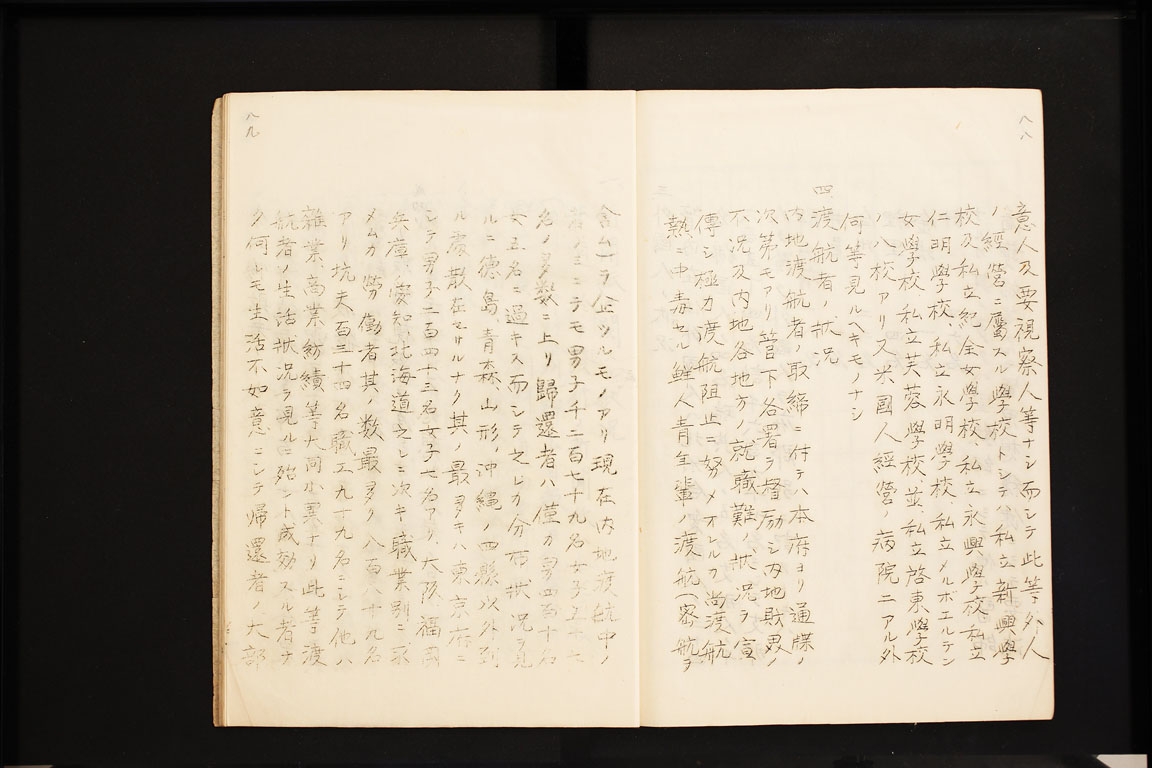 八八
意人及要視察人等ナシ而シテ此等外人
ノ經營ニ屬スル學校トシテハ私立新興學
校及私立紀全女學校私立永興學校私立
仁明學校、私立永明學校私立メルボエルテン
女學校、私立芙蓉學校、並私立啓東學校
ノ八校アリ又米國人經營ノ病院ニアル外
何等見ルヘキモノナシ
四、渡航者ノ狀況
內地渡航者ノ取締ニ付テハ本府ヨリ通牒ノ
次第モアリ管下各署ヲ督励シ內地財界ノ
不況及內地各地方ノ就職難ノ狀況ヲ宣
傳シ極力渡航阻止ニ努メオレルヲ尚渡航
熱ニ中毒セル鮮人青年輩ノ渡航(密航ヲ
八九
含ム)ヲ企ツルモノアリ現在內地渡航中ノ
者ノミニテモ男子千二百七十九名女子
名ノ多數ニ上リ歸還者ハ僅カ男四百十名
女五名ニ過キス而シテ之レカ分布狀況ヲ見
ルニ德島、青森、山形、沖縄ノ四縣以外到
ル處散在セサルナク其ノ最多キハ東京府ニ
シテ男子二百四十三名女子七名アリ大阪、福岡
兵庫、愛知、北海道之レニ次キ職業別ニ
メムカ勞働者其ノ數最多ク八百八十九名
アリ坑夫百三十四名職工九十九名ニシテ他ハ
雜業、商業、紡績等大同小異ナリ此等渡
航者ノ生活狀況ヲ見ルニ殆ント成効スル者ナ
ク何レモ生活不如意ニシテ帰還者ノ大部